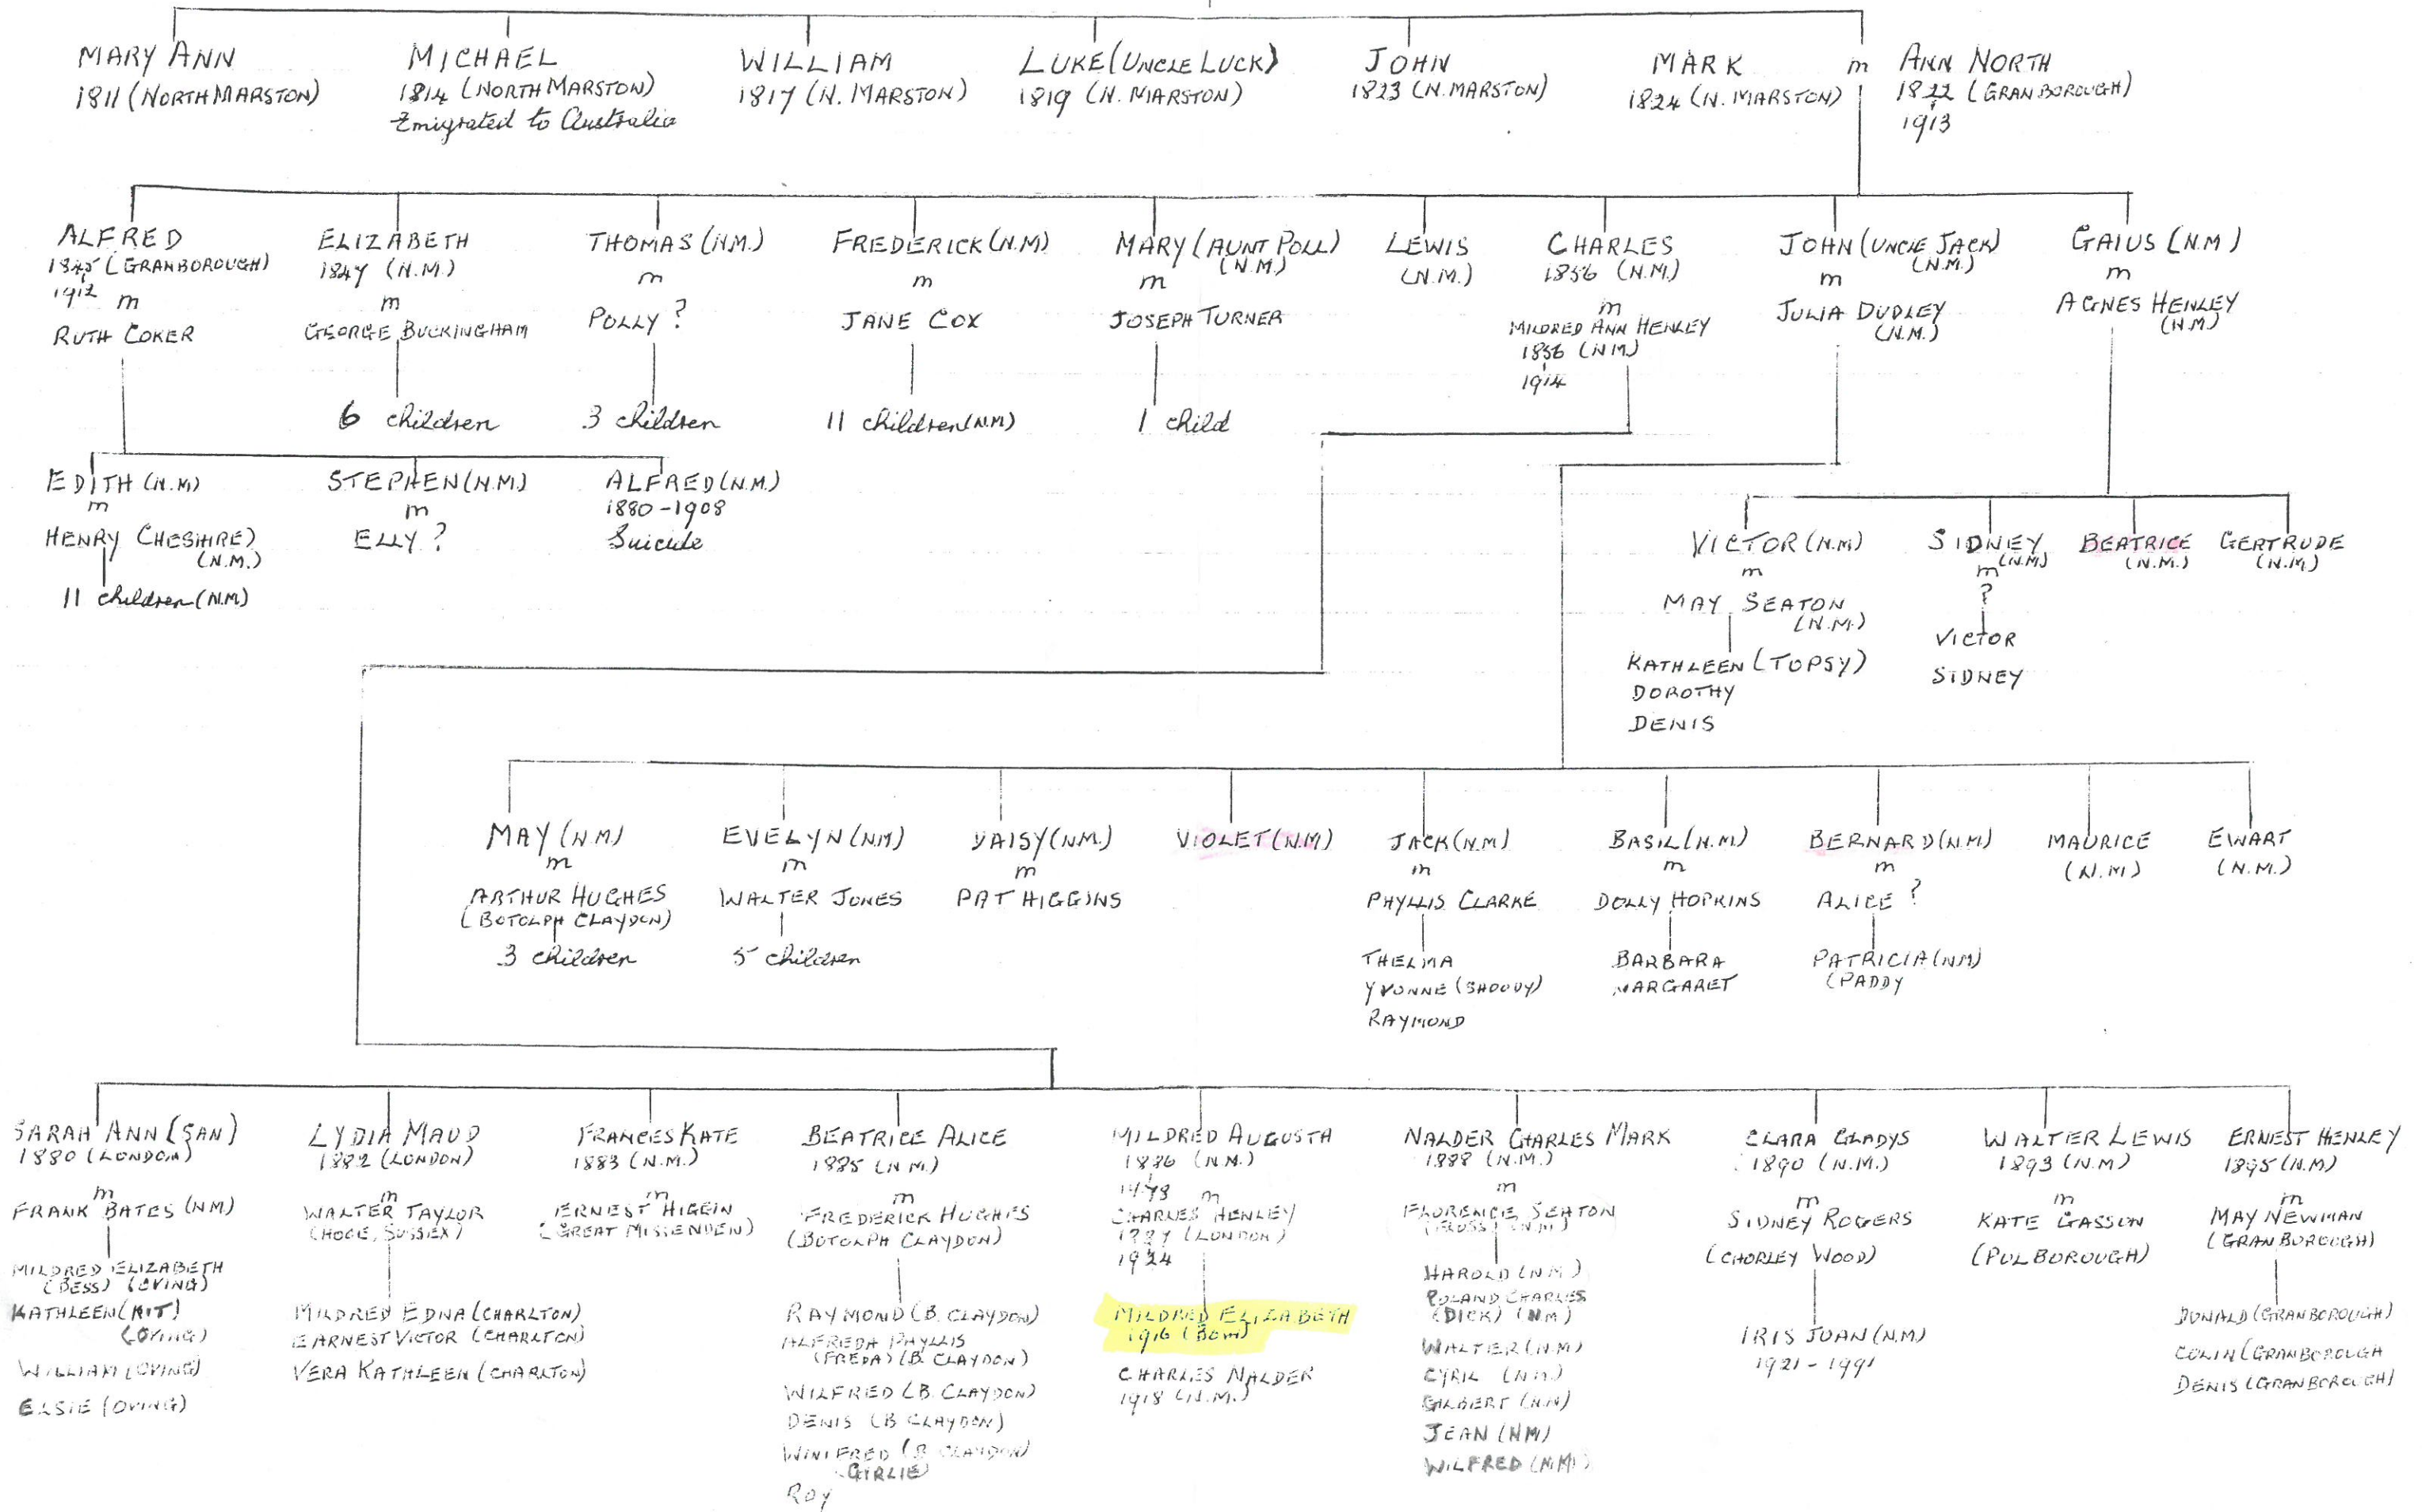 MARY ANN
1811 (NORTH MARSTON)
MICHAEL
1814 (NORTH MARSTON)
Emigrated to Australia
WILLIAM
1817 (N. MARSTON)
LUKE (UNCLE LUCK)
1819 (N. MARSTON)
JOHN
1823 (N. MARSTON)
MARK
1824 (N. MARSTON)
m
ANN NORTH
1822 (GRANBOROUGH)
1913
ALFRED
1845 (GRANBOROUGH)
1912 m
RUTH COKER
ELIZABETH
1847 (N.M.)
m
GEORGE BUCKINGHAM
6 children
THOMAS (N.M.)
m
POLLY ?
3 children
FREDERICK (N.M)
m
JANE COX
11 children (N.M)
MARY (AUNT POLL)
(N.M.)
m
JOSEPH TURNER
1 child
LEWIS
(N.M.)
CHARLES
1856 (N.M.)
m
MILDRED ANN HENLEY
1856 (N.M.)
1914
JOHN (UNCLE JACK)
(N.M.)
m
JULIA DUDLEY
(N.M.)
GAIUS (N.M)
m
AGNES HENLEY
(N.M)
EDITH (N.M)
m
HENRY CHESHIRE)
(N.M.)
11 children (N.M)
STEPHEN (N.M.)
m
ELLY ?
ALFRED (N.M.)
1880-1908
Suicide
VICTOR (N.M)
m
MAY SEATON
(N.M.)
KATHLEEN (TOPSY)
DOROTHY
DENIS
SIDNEY
(N.M)
m
?
VICTOR
SIDNEY
BEATRICE
(N.M.)
GERTRUDE
(N.M)
MAY (N.M)
m
ARTHUR HUGHES
(BOTOLPH CLAYDON)
3 children
EVELYN (N.M)
m
WALTER JONES
5 children
DAISY (N.M.)
m
PAT HIGGINS
VIOLET (N.M)
JACK (N.M)
m
PHYLLIS CLARKE
THELMA
YVONNE
RAYMOND
BASIL (N.M)
m
DOLLY HOPKINS
BARBARA
MARGARET
BERNARD (N.M)
m
ALICE ?
PATRICIA (N.M)
(PADDY
MAURICE
(N.M)
EWART
(N.M.)
SARAH ANN (SAN)
1880 (LONDON)
m
FRANK BATES (NM)
MILDRED ELIZABETH
(BESS) (OVING)
KATHLEEN (KIT)
(OVING)
WILLIAM (OVING)
ELSIE (OVING)
LYDIA MAUD
1882 (LONDON)
m
WALTER TAYLOR
(HOOE, SUSSEX)
MILDRED EDNA (CHARLTON)
EARNEST VICTOR (CHARLTON)
VERA KATHLEEN (CHARLTON)
FRANCES KATE
1883 (N.M.)
m
ERNEST HIGGIN
(GREAT MISSENDEN)
BEATRICE ALICE
1885 (N.M.)
m
FREDERICK HUGHES
(BOTOLPH CLAYDON)
RAYMOND (B. CLAYDON)
ALFREDA PHYLLIS
(FREDA) (B. CLAYDON)
WILFRED (B. CLAYDON)
DENIS (B CLAYDON)
WINIFRED (B CLAYDON)
GIRLIE)
ROY
MILDRED AUGUSTA
1886 (N.M.)
m
CHARLES HENLEY
(LONDON)
MILDRED ELIZABETH
1916
CHARLES NALDER
1918 (N.M.)
NALDER CHARLES MARK
1888 (N.M.)
m
FLORENCE SEATON
(FLOSS) (N.M)
HAROLD (N.M)
ROLAND CHARLES
(DICK) (NM)
WALTER (N.M)
CYRIL (N.M.)
GILBERT (N.M)
JEAN (NM)
WILFRED (N.M)
CLARA GLADYS
1890 (N.M.)
m
SIDNEY ROGERS
(CHORLEY WOOD)
IRIS JOAN (N.M)
1921-1991
WALTER LEWIS
1893 (N.M)
m
KATE GASSON
(PULBOROUGH)
ERNEST HENLEY
1895 (N.M)
m
MAY NEWMAN
(GRANBOROUGH)
DONALD (GRANBOROUGH)
COLIN (GRANBOROUGH
DENIS (GRANBOROUGH)